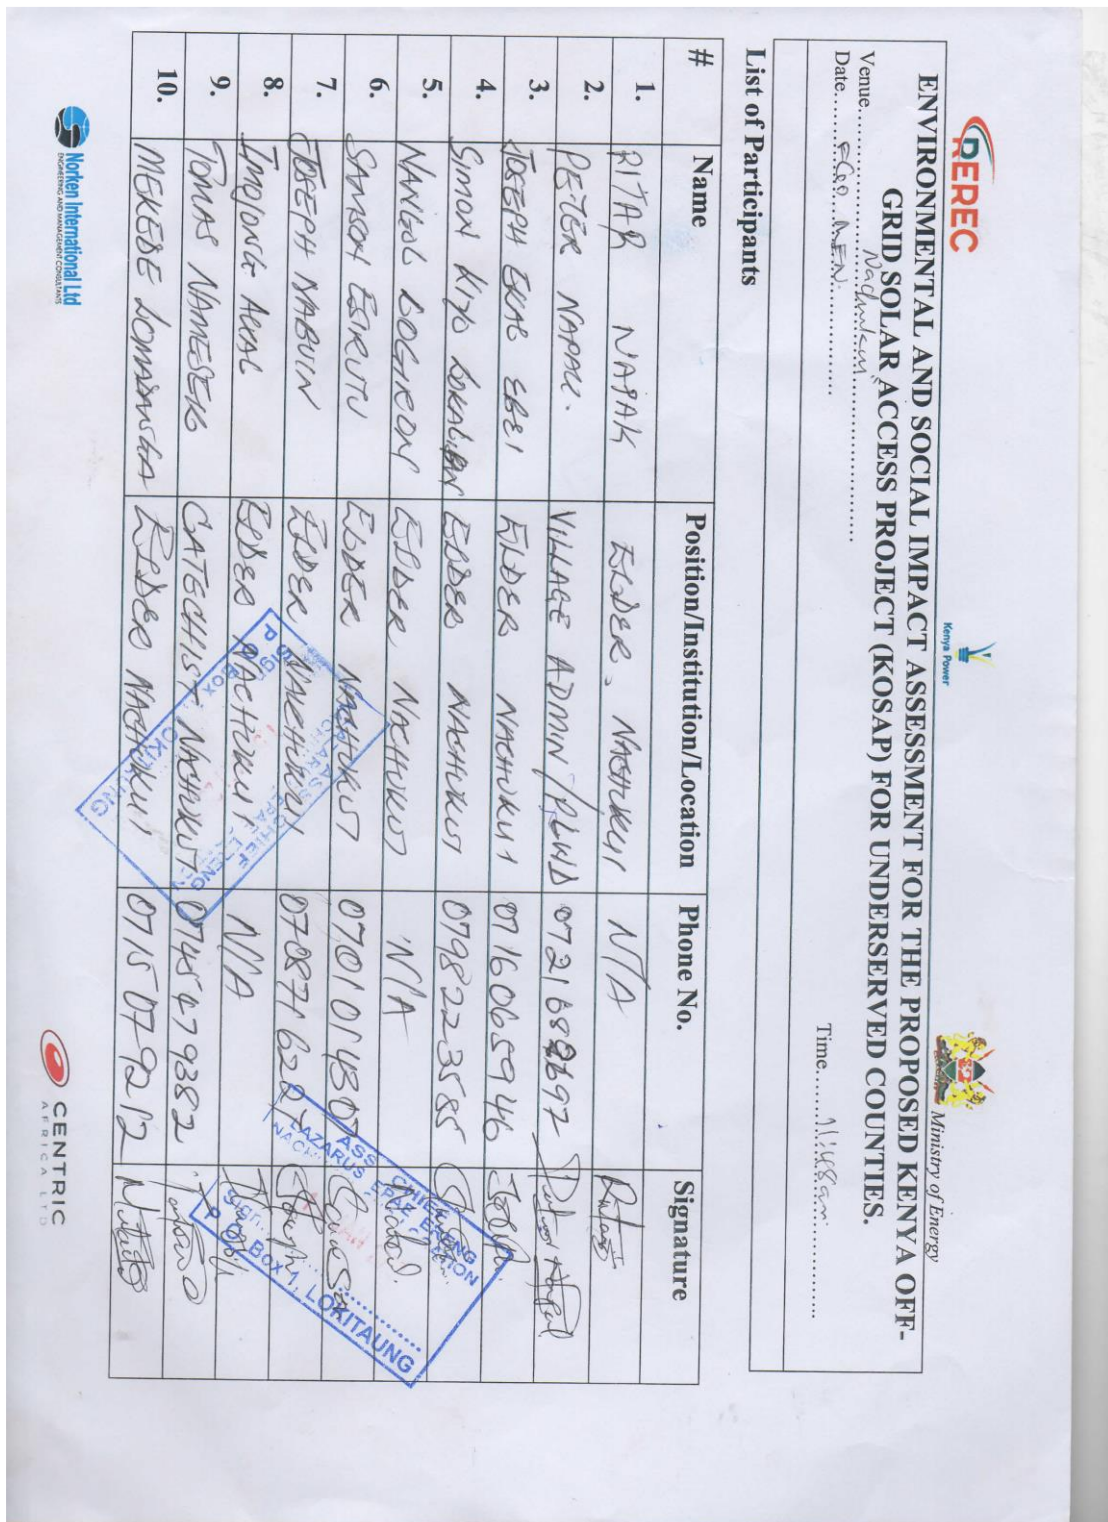 REREC
Kenya Power
Ministry of Energy
ENVIRONMENTAL AND SOCIAL IMPACT ASSESSMENT FOR THE PROPOSED KENYA OFF-
GRID SOLAR ACCESS PROJECT (KOSAP) FOR UNDERSERVED COUNTIES.
Venue
Date Time 11:48am
List of Participants
# Name Position/Institution/Location Phone No. Signature
1. RITAR NAPAK ELDER, NACHUKUI N/A
2. PETER NAPAU. VILLAGE ADMIN/PLWD
3. JOSEPH EKAB EBEI ELDER NACHUKUI 0716065946 Joseph
4. SIMON KIYO ELDER NACHUKUI 0798223585
5. NANGOL LOGIRON ELDER NACHUKUI N/A
6. SAMSON ESIRUTU ELDER NACHUKUI 0701014307
7. JOSEPH NABUIN ELDER NACHUKUI 0708716227 Joseph
8. ELDER NACHUKUI N/A
9. TOMAS NAMESEK CATECHIST NACHUKUI 0745479382
10. MEKEDE ELDER NACHUKUI 0715079212
ASS. CHIEF
LAZARUS EPAE ERENG
Sign.
P.O. Box 1, LOKITAUNG
Norken International Ltd
ENGINEERING AND MANAGEMENT CONSULTANTS
CENTRIC
AFRICA LTD